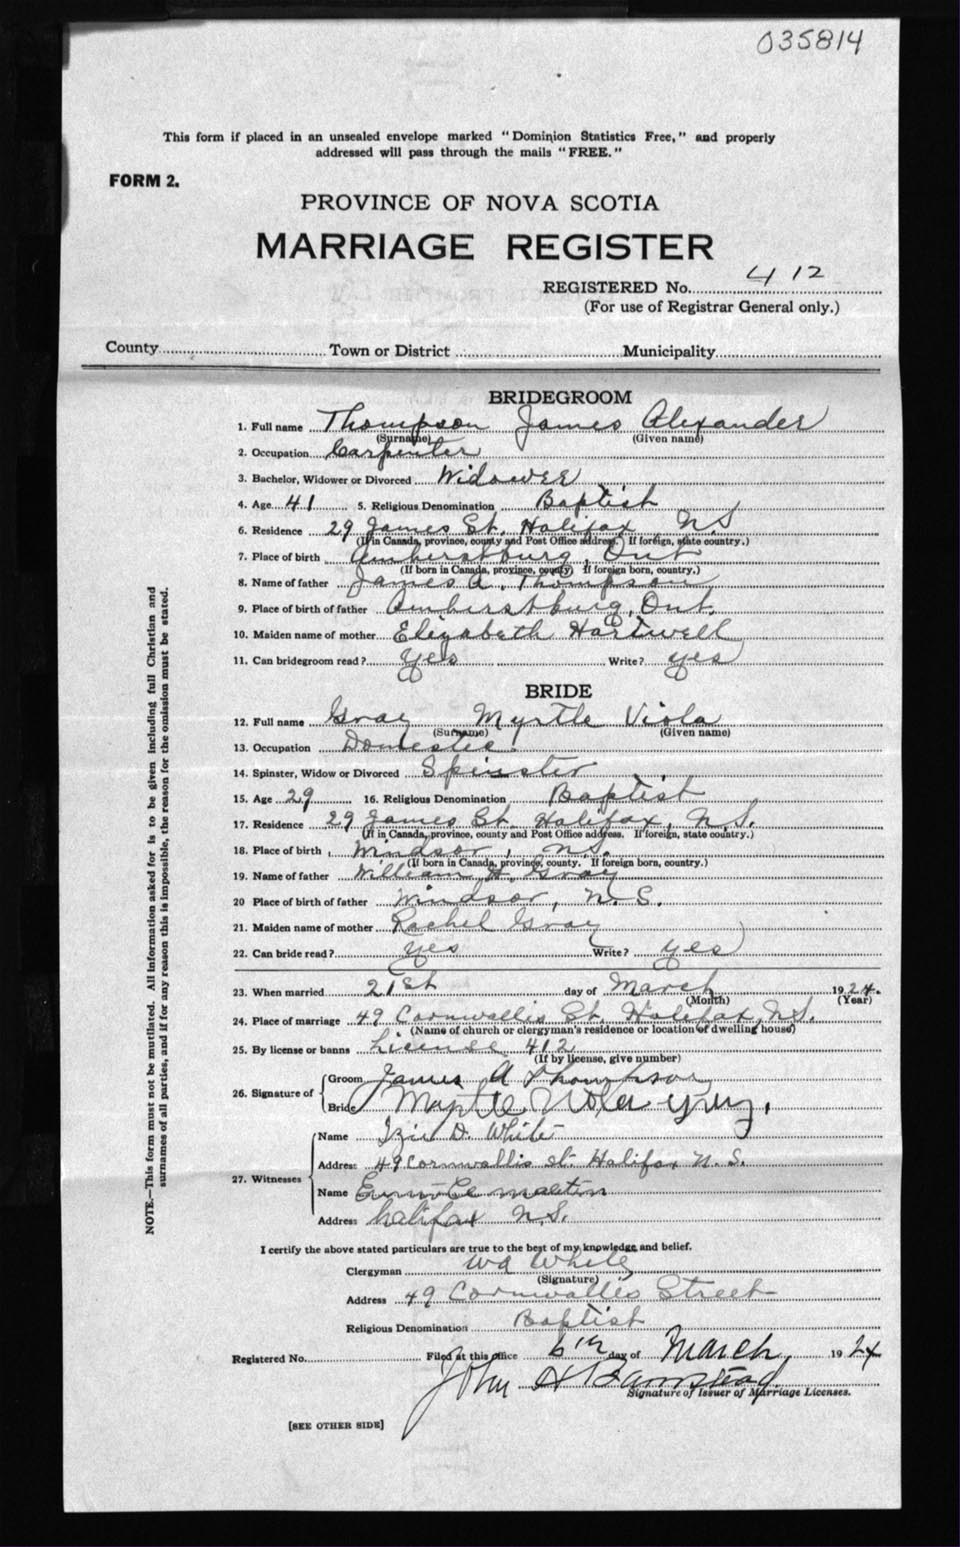 035814
This form if placed in an unsealed envelope marked "Dominion Statistics Free," and properly
addressed will pass through the mails "FREE."
FORM 2.
PROVINCE OF NOVA SCOTIA
MARRIAGE REGISTER
REGISTERED No. 412
(For use of Registrar General only.)
County Town or District Municipality
BRIDEGROOM
1. Full name Thompson James Alexander
(Surname) (Given name)
2. Occupation Carpenter
3. Bachelor, Widower or Divorced Widower
4. Age 41 5. Religious Denomination Baptist
6. Residence 29 James St. Halifax N.S
(If in Canada, province, county and Post Office address. If foreign, state country.)
7. Place of birth Amherstburg Ont
(If born in Canada, province, county. If foreign born, country.)
8. Name of father James A. Thompson
9. Place of birth of father Amherstburg, Ont.
10. Maiden name of mother Elizabeth Hartwell
11. Can bridegroom read? yes Write? yes
BRIDE
12. Full name Gray Myrtle Viola
(Surname) (Given name)
13. Occupation Domestic
14. Spinster, Widow or Divorced Spinster
15. Age 29 16. Religious Denomination Baptist
17. Residence 29 James St. Halifax, N.S.
(If in Canada, province, county and Post Office address. If foreign, state country.)
18. Place of birth Windsor, N.S.
(If born in Canada, province, county. If foreign born, country.)
19. Name of father William H. Gray
20 Place of birth of father Windsor, N.S.
21. Maiden name of mother Rachel Gray
22. Can bride read? yes Write? yes
23. When married 21st day of March 1924.
(Month) (Year)
24. Place of marriage 49 Cornwallis St. Halifax, N.S.
(Name of church or clergyman's residence or location of dwelling house)
25. By license or banns License 412
(If by license, give number)
26. Signature of Groom James A Thompson
Bride Myrtle Viola Gray.
27. Witnesses
Name Izie D. White
Address 49 Cornwallis St. Halifax N.S.
Name
Address Halifax N.S.
I certify the above stated particulars are true to the best of my knowledge and belief.
Clergyman Wa White
(Signature)
Address 49 Cornwallis Street
Religious Denomination Baptist
Registered No. Filed at this office 6th day of March 1924
John H Barnstead
Signature of Issuer of Marriage Licenses.
[SEE OTHER SIDE]
NOTE.—This form must not be mutilated. All information asked for is to be given including full Christian and
surnames of all parties, and if for any reason this is impossible, the reason for the omission must be stated.